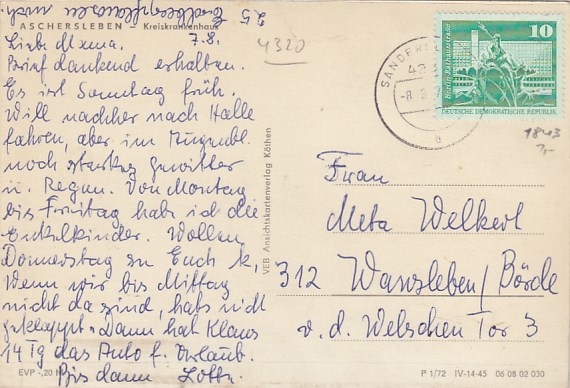 25 Erdbeerpflanzen auch.
ASCHERSLEBEN – Kreiskrankenhaus
7.8.
Liebe Mama.
Brief dankend erhalten.
Es ist Sonntag früh.
Will nachher nach Halle
fahren, aber im Augenbl.
noch starkes Gewitter
u. Regen. Von Montag
bis Freitag hab ich die
Enkelkinder. Wollen
Donnerstag zu Euch k,
Wenn wir bis Mittag
nicht da sind, hats nicht
geklappt. Dann hat Klaus
14 Tg das Auto f. Urlaub.
Bis dann Lotte.
EVP -,20
4320
VEB Ansichtskartenverlag Köthen
SANDER
-8.8.
a
10
DEUTSCHE DEMOKRATISCHE REPUBLIK
1843
Frau
Meta Welkerl
312 Wanzleben/Börde
v. d. Welschen Tor 3
P 1/72 IV-14-45 06 08 02 030